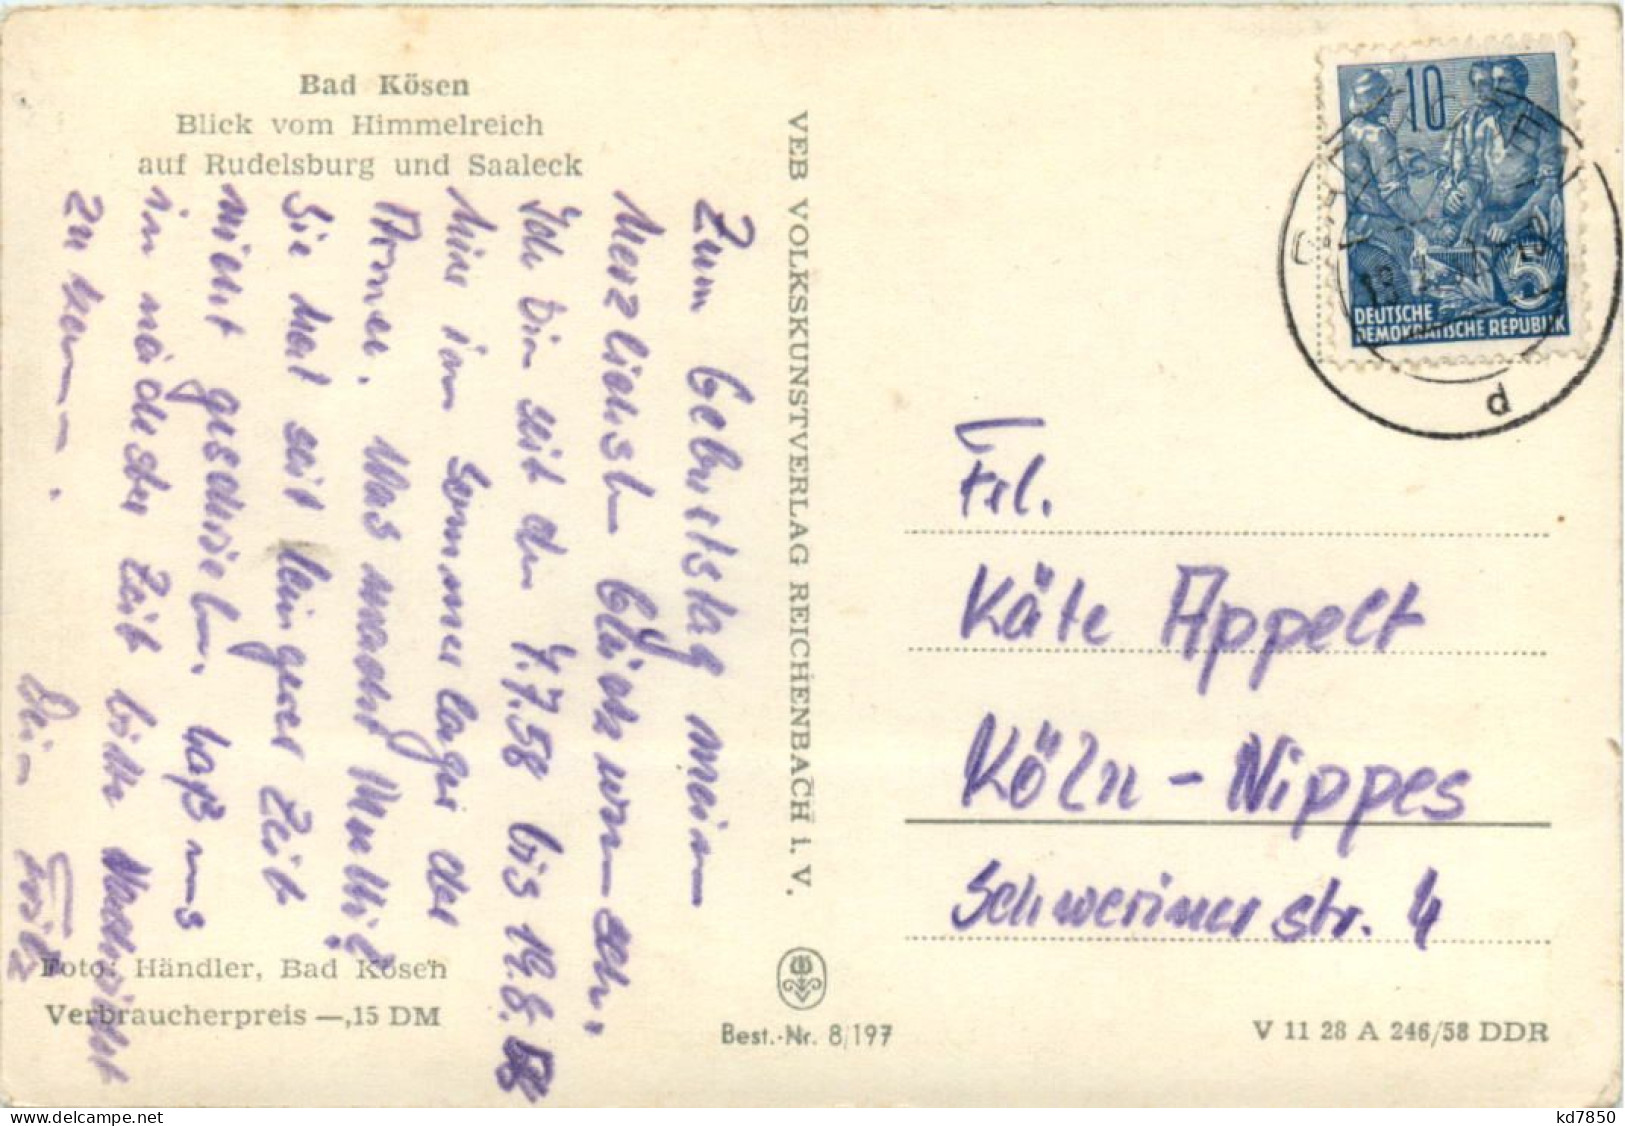 Bad Kösen
Blick vom Himmelreich
auf Rudelsburg und Saaleck
Zum Geburtstag mein
Herzlichst Glückwunsch.
Ich bin seit den 4.7.58 bis 19.8.58
hier im Sommerlager der
Armee. Was macht Mutti?
Sie hat seit längerer Zeit
nicht geschrieben. Laß uns
in nächster Zeit bitte Nachricht
zu kommen.
Dein Fritz
Foto: Händler, Bad Kösen
Verbraucherpreis —,15 DM
VEB VOLKSKUNSTVERLAG REICHENBACH i. V.
Best.-Nr. 8/197
10
5
DEUTSCHE
DEMOKRATISCHE REPUBLIK
d
Frl.
Käte Appelt
Köln - Nippes
Schwerinerstr. 4
V 11 28 A 246/58 DDR
www.delcampe.net
kd7850